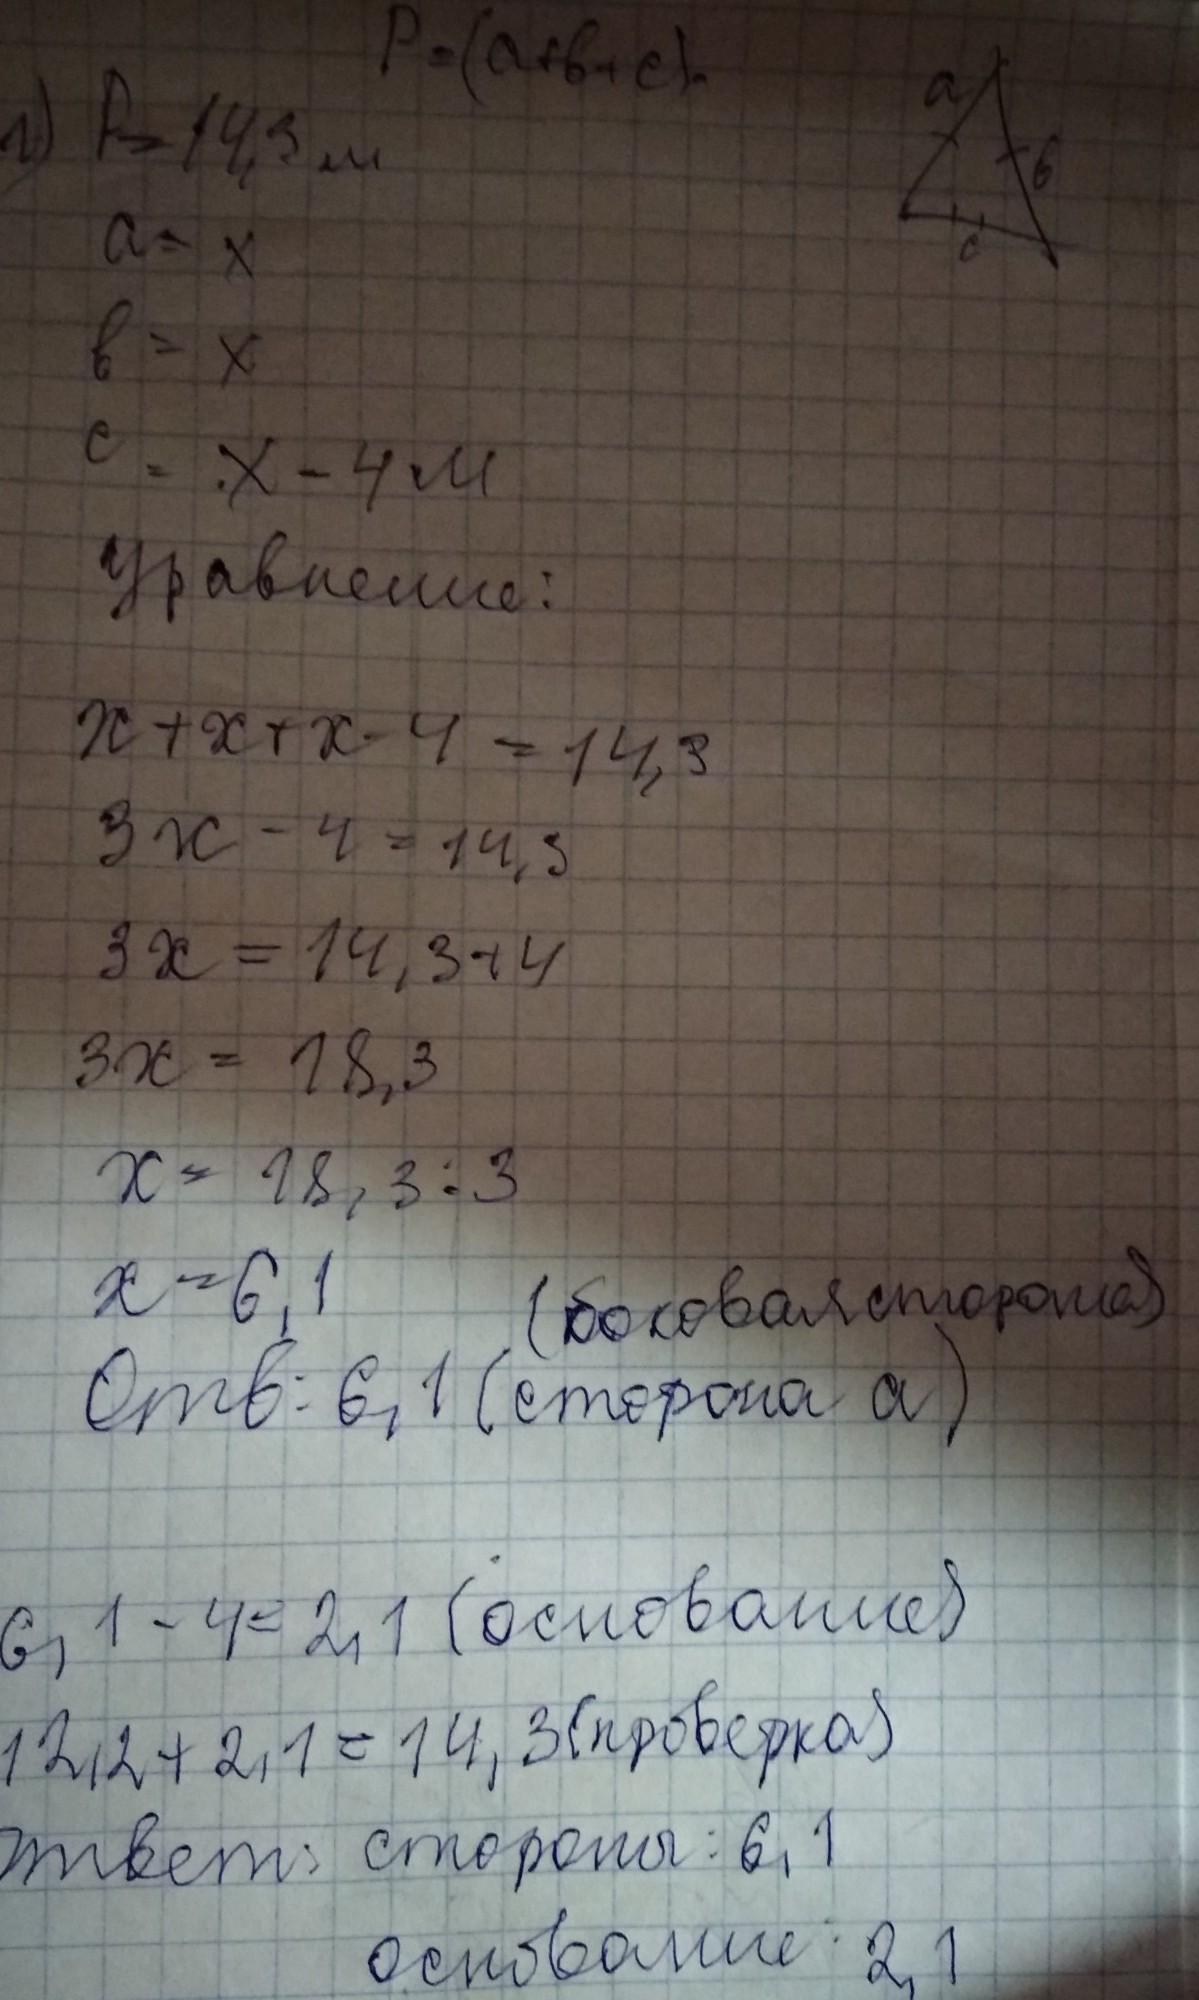 P=(a+b+c).
a
b
c
1) P=14,3м
a= x
b= x
c= x-4м
Уравнение:
x+x+x-4=14,3
3x-4=14,3
3x=14,3+4
3x=18,3
x=18,3:3
x=6,1 (боковая сторона)
Отв: 6,1 (сторона a)
6,1-4=2,1 (основание)
12,2+2,1=14,3(проверка)
Ответ: стороны: 6,1
основание: 2,1